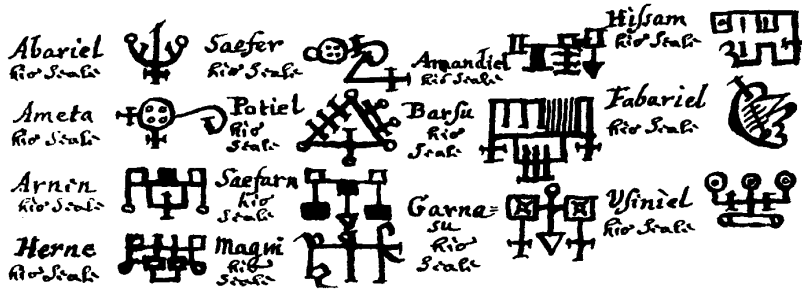 Abariel
his Seale
Ameta
his Seale
Arnen
his Seale
Herne
his Seale
Saefer
his Seale
Potiel
his
Seale
Saefarn
his
Seale
Magni
his
Seale
Amandiel
his Seale
Barsu
his
Seale
Garna=
su
his
Seale
Hissam
his Seale
Fabariel
his Seale
Vsiniel
his Seale